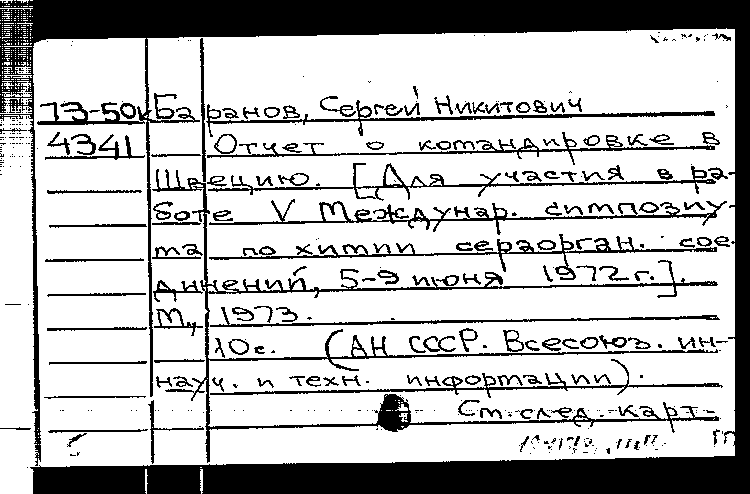 73-50к Баранов, Сергей Никитович
4341 Отчет о командировке в
Швецию. [Для участия в ра-
боте V Междунар. симпозиу-
ма по химии сераорган. сое-
динений, 5-9 июня 1972 г.].
М., 1973.
10 с. (АН СССР. Всесоюз. ин-
науч. и техн. информации).
См. след. карт-